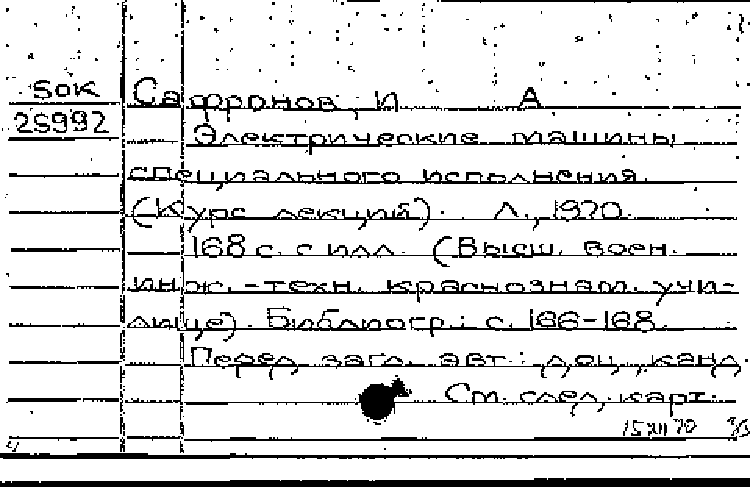 50к Сафронов, И А
25992 Электрические машины
специального исполнения.
(Курс лекций). Л., 1970.
168 с. с илл. (Высш. воен.
инж.-техн. краснознам. учи-
лище). Библиогр.: с. 166-168.
Перед загл. авт.: доц., канд.
См. след. карт.
15 XII 70